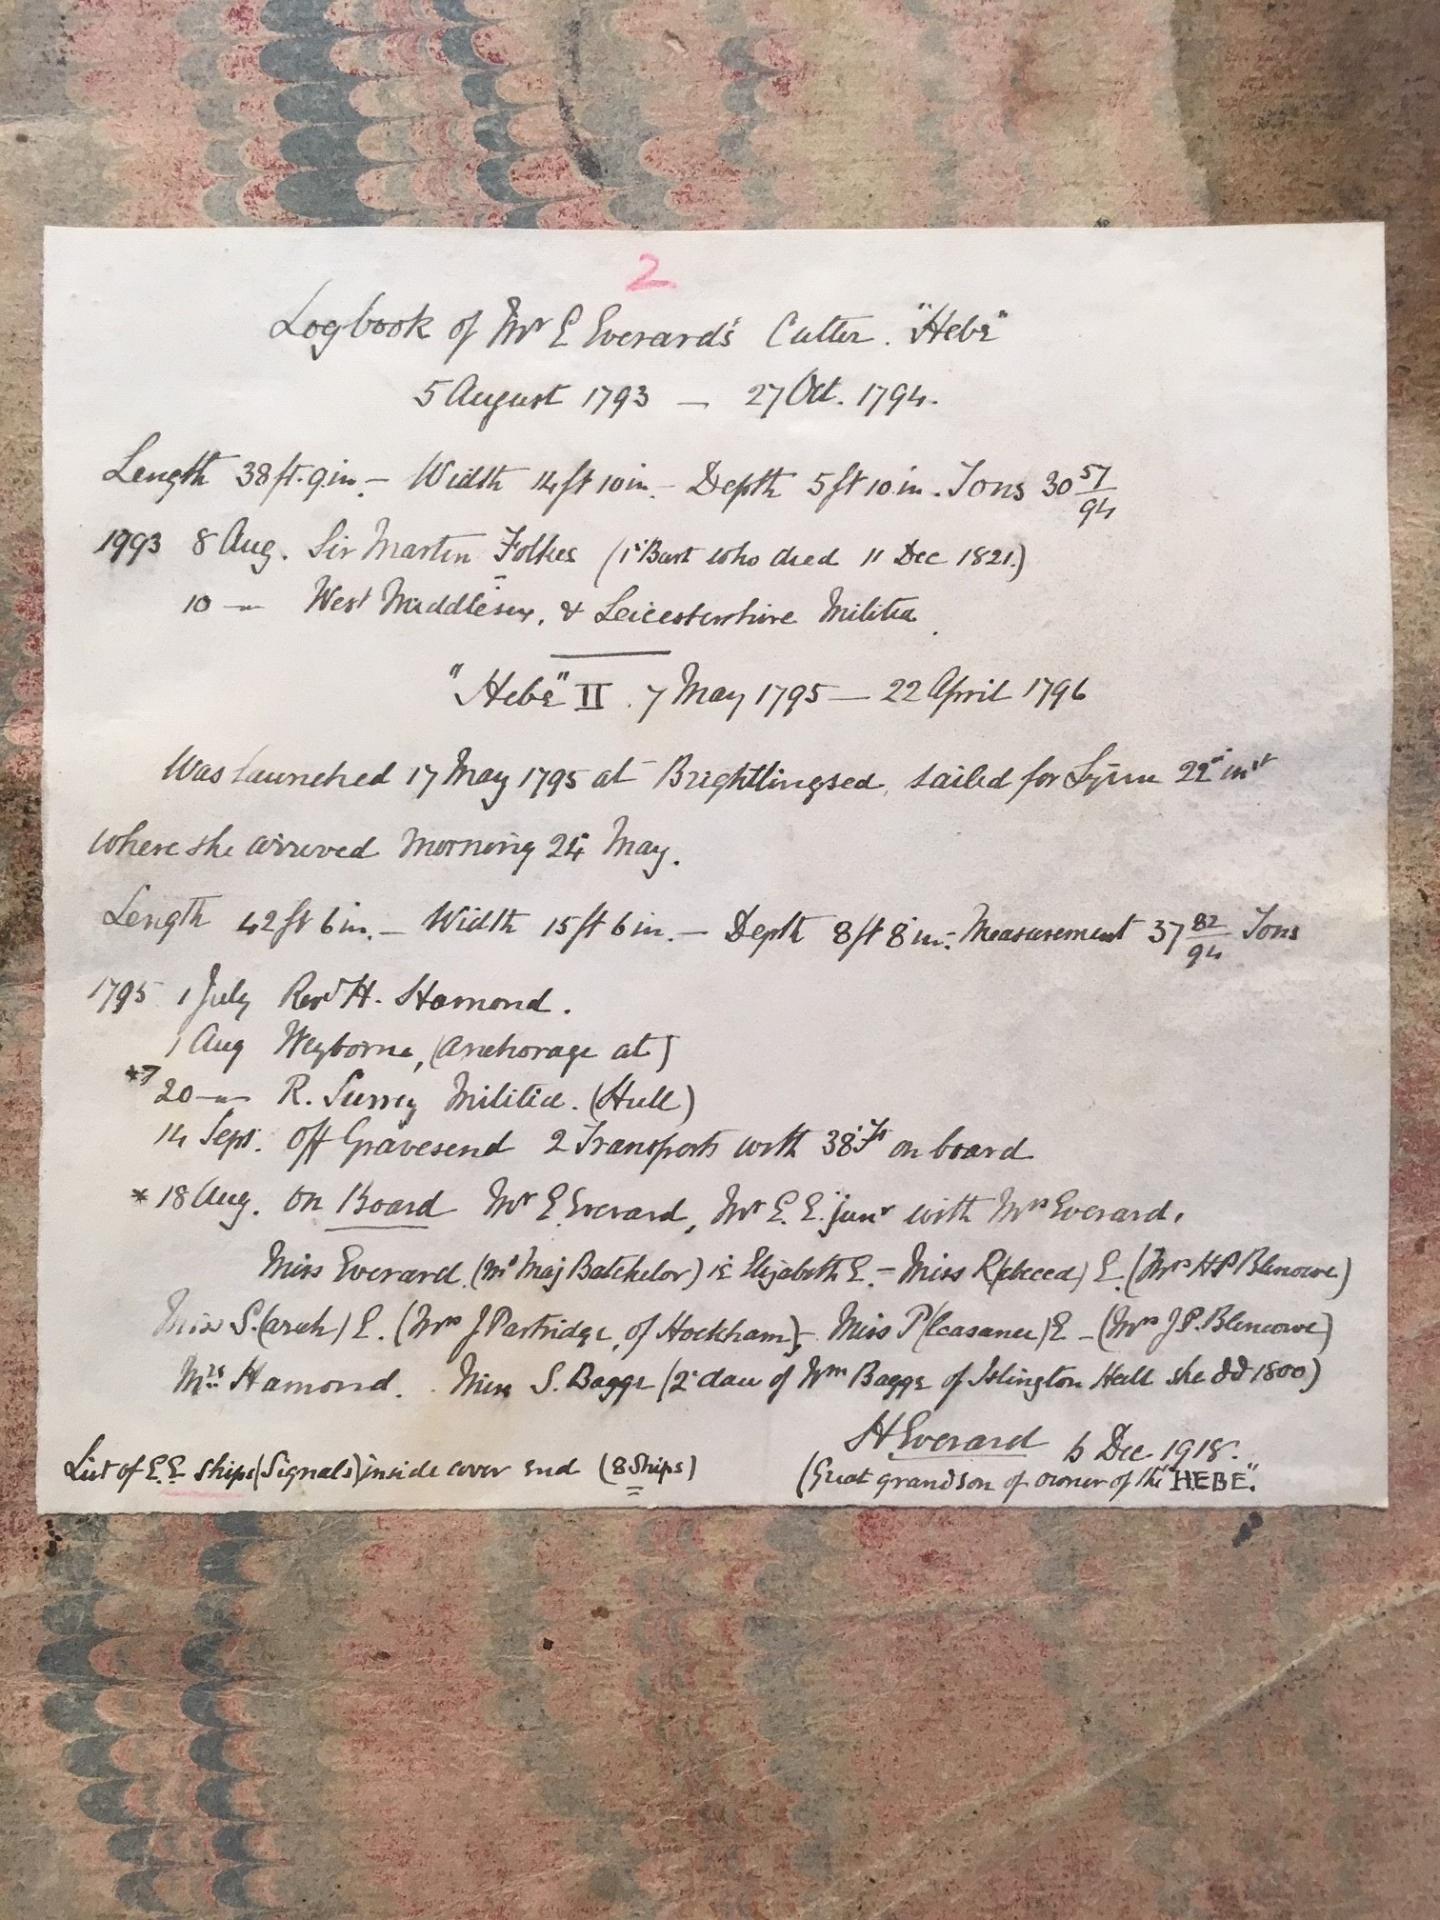 2
Logbook of Mr E Everard's Cutter. "Hebe"
5 August 1793 — 27 Oct. 1794.
Length 38 ft. 9 in. – Width 14 ft 10 in. – Depth 5 ft 10 in. Tons 30 57/94
1993 8 Aug. Sir Martin Folkes (1st Bart who died 11 Dec 1821.)
10 –"– West Middlesex, & Leicestershire Militia
"Hebe" II. 7 May 1795 — 22 April 1796
Was launched 17 May 1795 at Brightlingsea, sailed for Lynn 22nd inst
where she arrived morning 24 May.
Length 42 ft 6 in. – Width 15 ft 6 in. – Depth 8 ft 8 in. – Measurement 37 82/94 Tons
1795 1 July Revd H. Hamond.
1 Aug Weyborne, (Anchorage at)
*7 20 –"– R. Surrey Militia. (Hull)
14 Sept. Off Gravesend 2 Transports with 38th on board
* 18 Aug. On Board Mr E. Everard, Mr E. E. junr with Mrs Everard,
Miss Everard (Mrs Maj Batchelor) ie Elizabeth E. – Miss R(ebecca) E. (Mrs H P Blencowe)
Miss S.(arah) E. (Mrs J Partridge, of Hockham) – Miss P(leasance) E – (Mrs J. P. Blencowe)
Mrs Hamond. Miss S. Bagge (2d dau of Wm Bagge of Islington Hall she dd 1800)
H. Everard 6 Dec. 1918.
List of E.E ships (Signals) inside cover end (8 Ships)
(Great grandson of owner of the "HEBE".